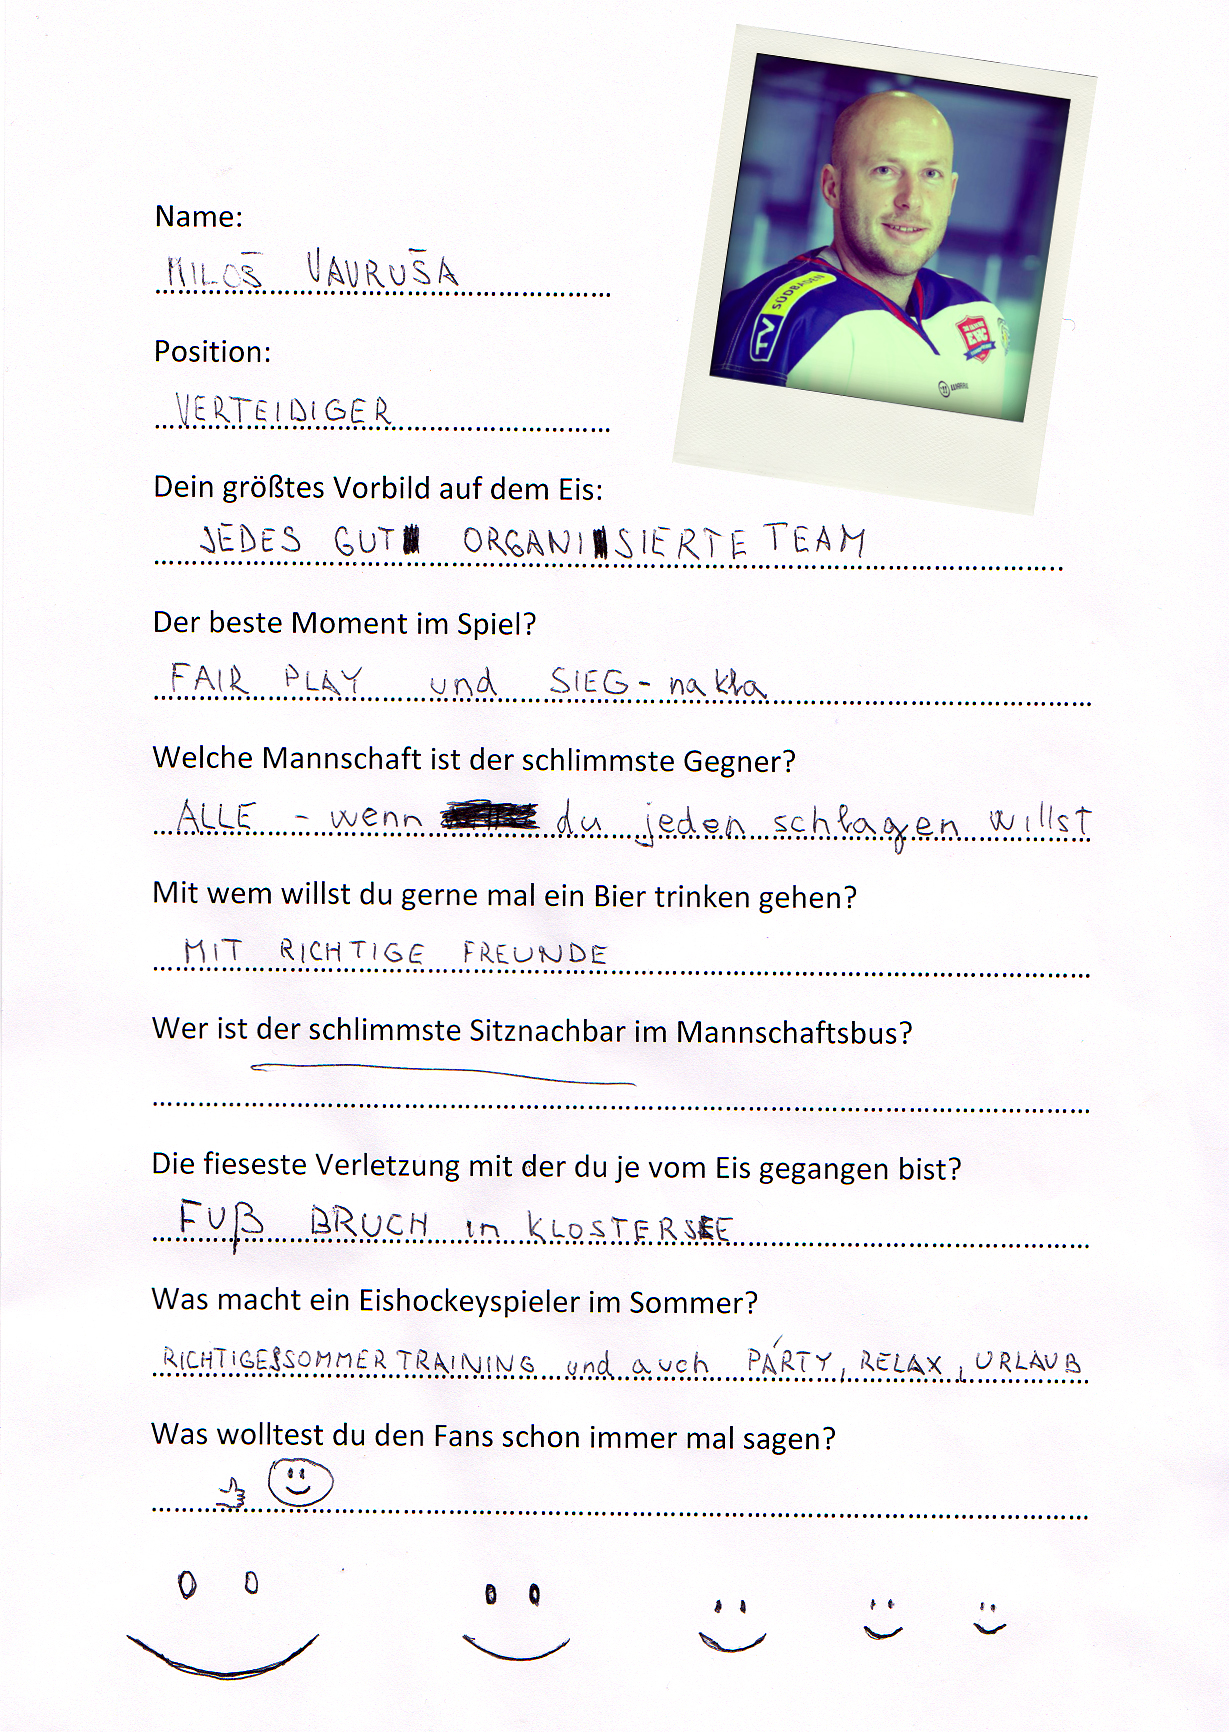 Name:
MILOŠ VAVRUŠA
Position:
VERTEIDIGER
Dein größtes Vorbild auf dem Eis:
JEDES GUT ORGANISIERTE TEAM
Der beste Moment im Spiel?
FAIR PLAY und SIEG - na kla
Welche Mannschaft ist der schlimmste Gegner?
ALLE - wenn du jeden schlagen willst
Mit wem willst du gerne mal ein Bier trinken gehen?
MIT RICHTIGE FREUNDE
Wer ist der schlimmste Sitznachbar im Mannschaftsbus?
Die fieseste Verletzung mit der du je vom Eis gegangen bist?
FUß BRUCH in KLOSTERSEE
Was macht ein Eishockeyspieler im Sommer?
RICHTIGES SOMMERTRAINING und auch PÁRTY, RELAX, URLAUB
Was wolltest du den Fans schon immer mal sagen?
TV SÜDBADEN
EHC